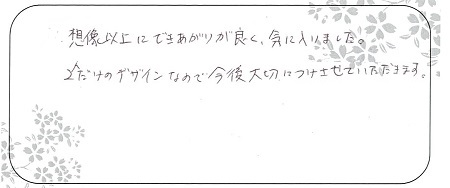 想像以上にできあがりが良く、気に入りました。
2人だけのデザインなので今後大切につけさせていただきます。